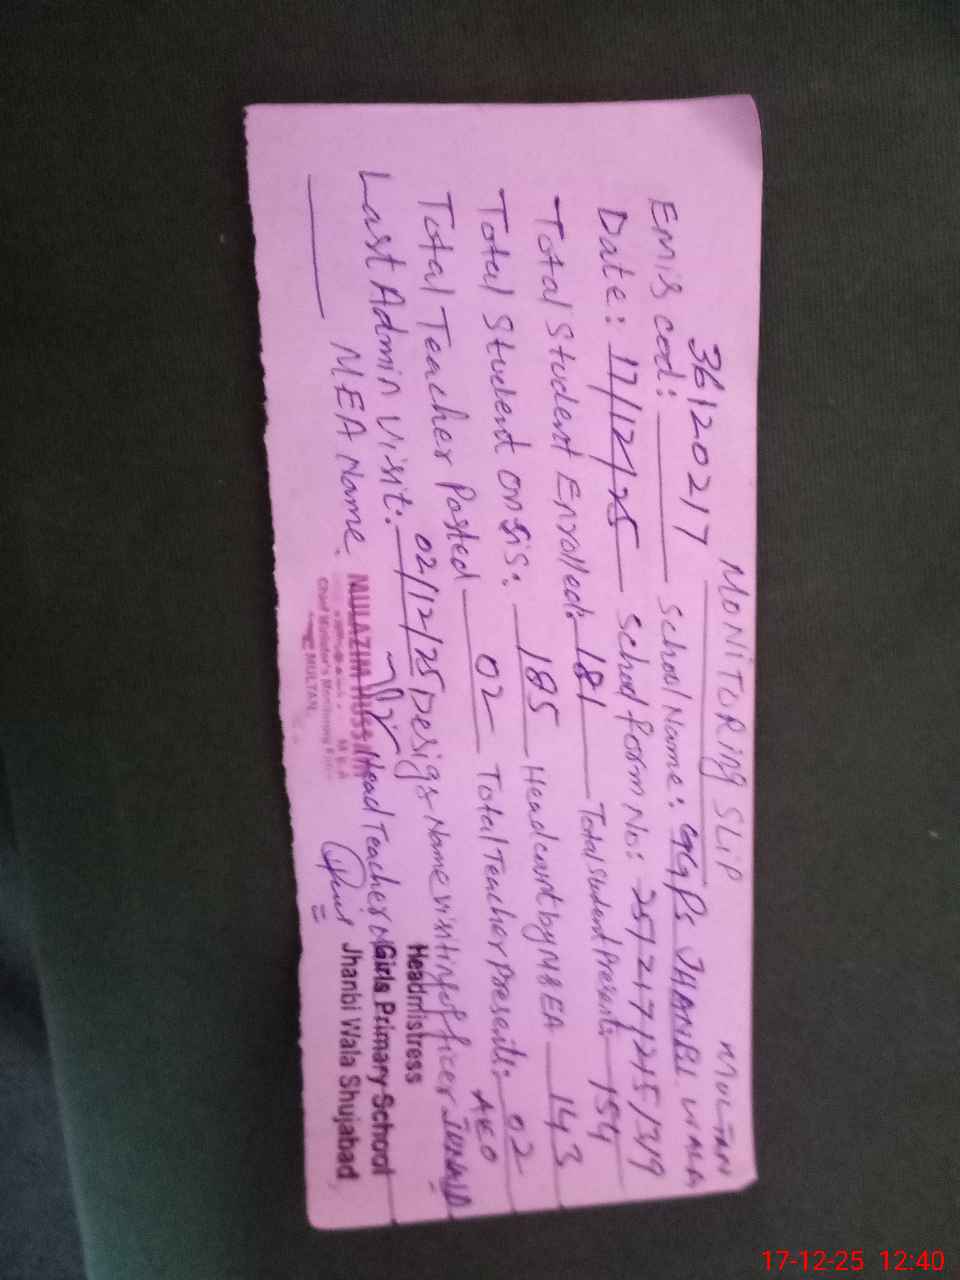 MONITORing SLIP MULTAN
36120217
Emis cod: School Name: GGPS JHANBI WALA
Date: 17/12/25 School form No:
Total Student Enrolled: 181 Total student Present: 154
Total Student on sis: 185 Head count by MEA 143
Total Teacher Posted 02 Total Teacher Present: 02
Last Admin Visit: 02/12/25 Desig & Name visiting officer JUNAID AEO
MEA Name Head Teacher
MULAZIM HUSSAIN
MEA
Chief Minister's Monitoring Force
MULTAN
Headmistress
Girls Primary School
Jhanbi Wala Shujabad
17-12-25 12:40